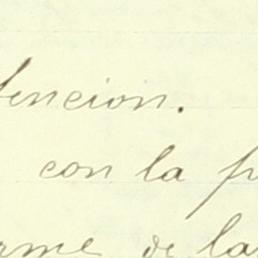 tencion.
con la p
rme de la